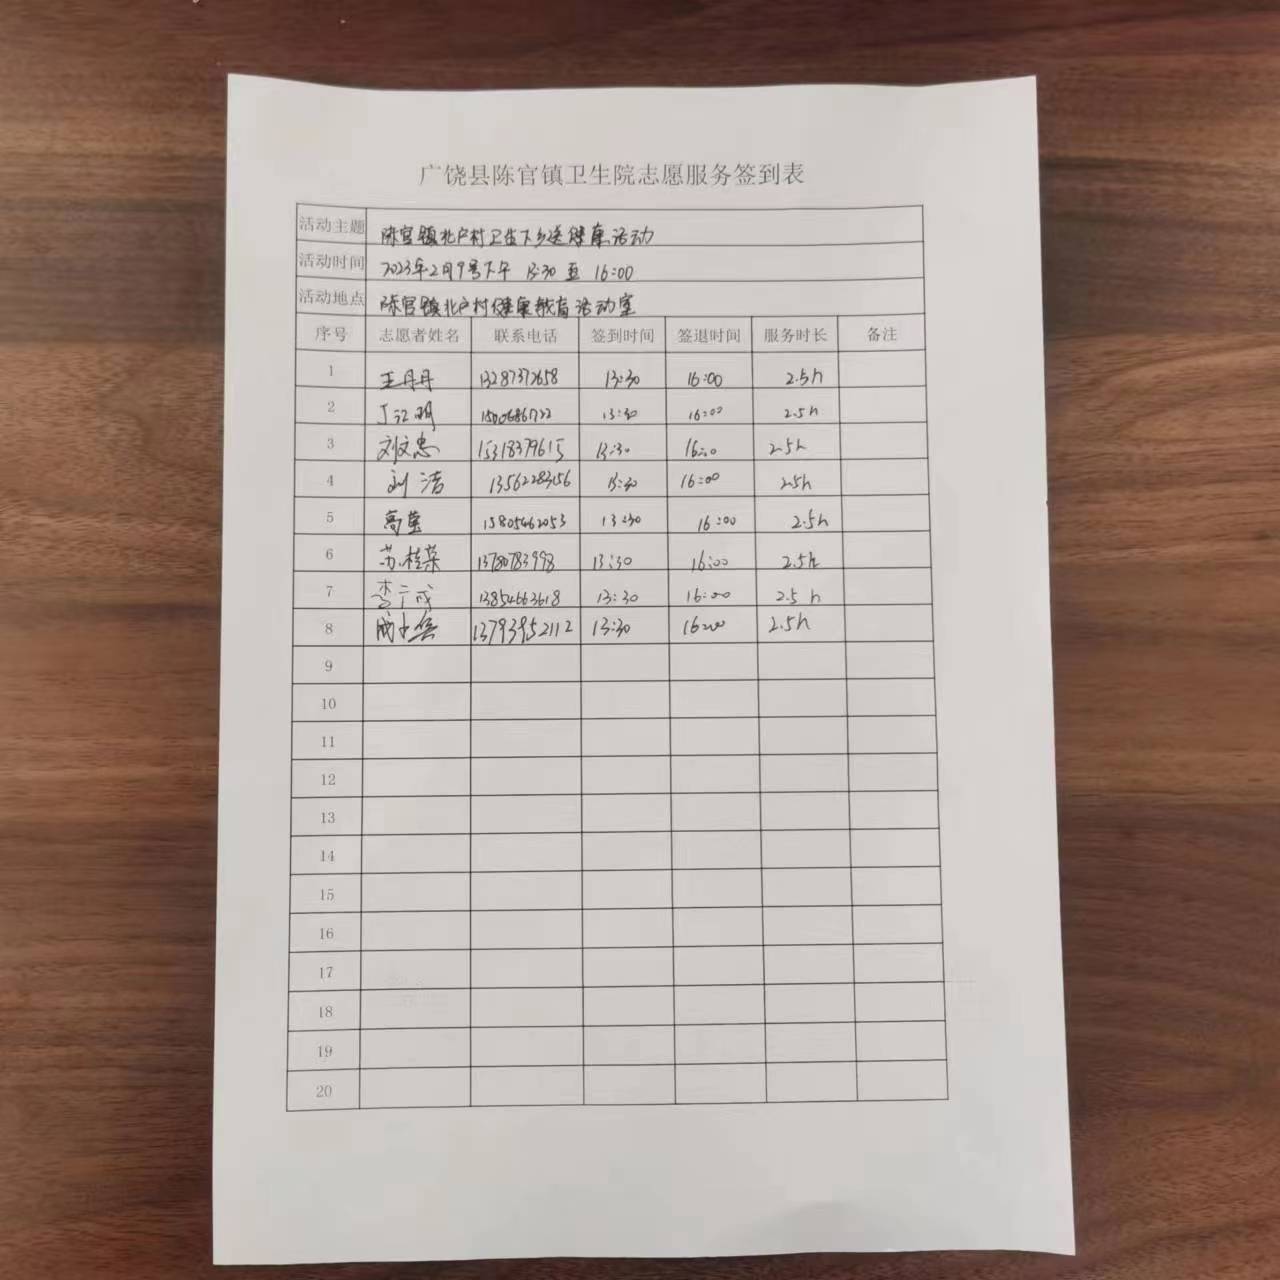 广饶县陈官镇卫生院志愿服务签到表
活动主题 陈官镇北户村卫生下乡送健康活动
活动时间 2023年2月9号下午 13:30 至 16:00
活动地点 陈官镇北户村健康教育活动室
序号 志愿者姓名 联系电话 签到时间 签退时间 服务时长 备注
1 王丹丹 13287372658 13:30 16:00 2.5h
2 丁江明 13:30 16:00 2.5h
3 刘文忠 15318379615 13:30 16:00 2.5h
4 刘洁 13562283156 13:30 16:00 2.5h
5 高莹 15805462053 13:30 16:00 2.5h
6 苏桂荣 13780783998 13:30 16:00 2.5h
7 李广成 13854663618 13:30 16:00 2.5h
8 13793952112 13:30 16:00 2.5h
9
10
11
12
13
14
15
16
17
18
19
20